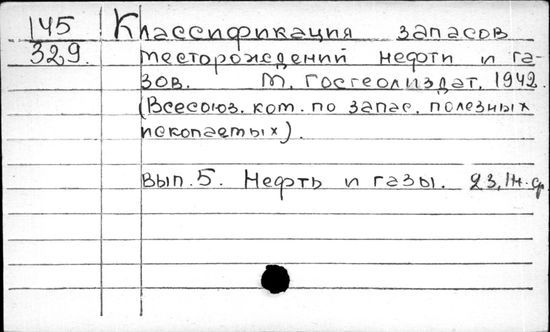 145
329.
Классификация запасов
месторождений нефти и га-
зов. М. Госгеолиздат. 1942.
(Всесоюз. ком. по запас. полезных
ископаемых).
Вып. 5. Нефть и газы. 23,